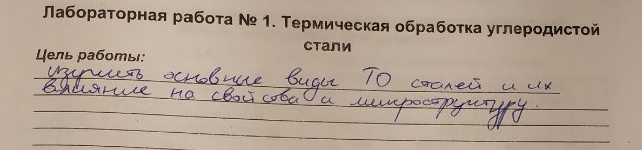 Лабораторная работа № 1. Термическая обработка углеродистой
стали
Цель работы:
изучить основные виды ТО сталей и их
влияние на свойства и микроструктуру.